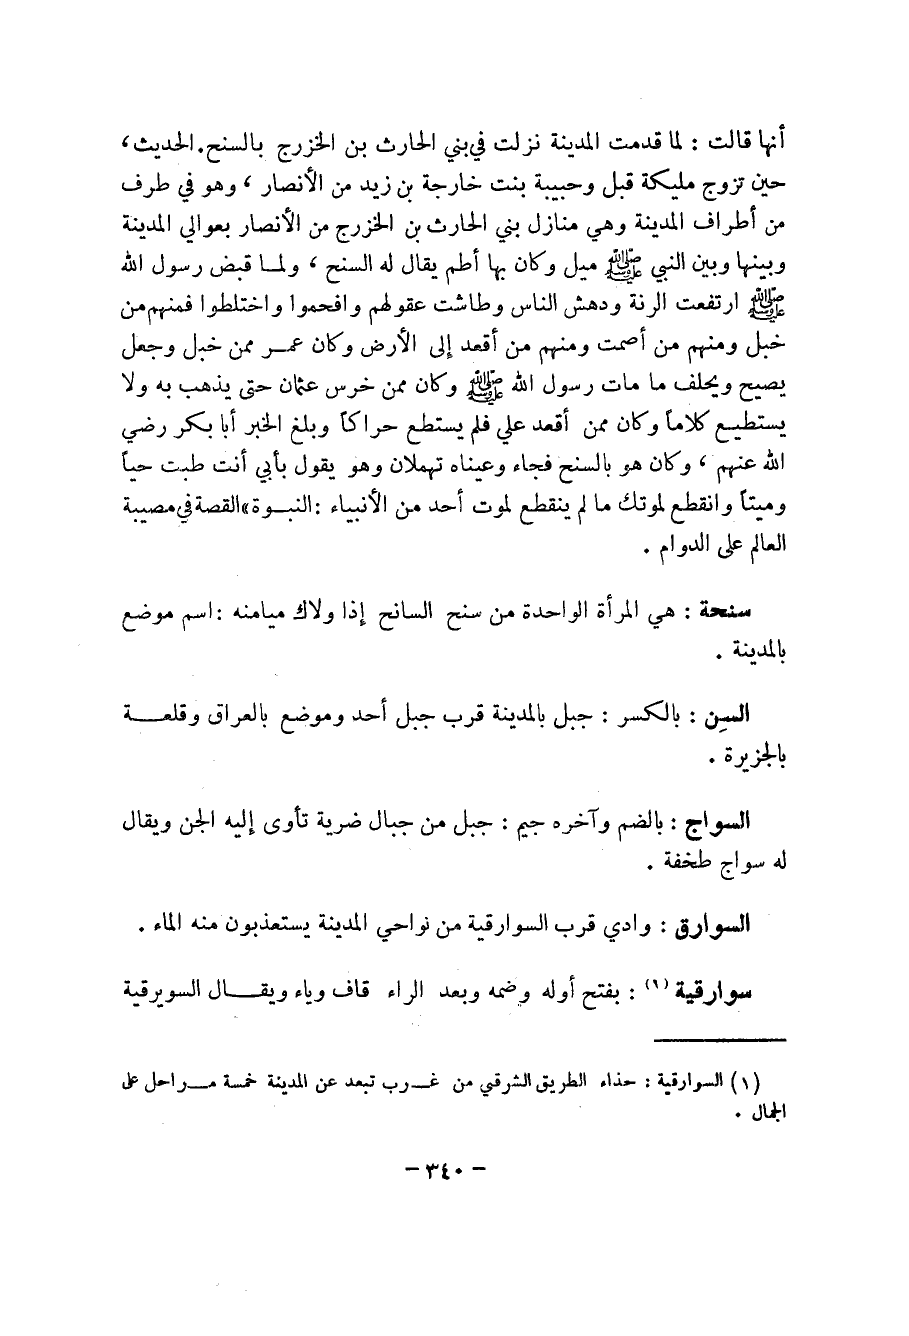 أنها قالت : لما قدمت المدينة نزلت في بني الحارث بن الخزرج بالسنح. الحديث ،
حين تزوج مليكة قبل وحبيبة بنت خارجة بن زيد من الأنصار ، وهو في طرف
من أطراف المدينة وهي منازل بني الحارث بن الخزرج من الأنصار بعوالي المدينة
وبينها وبين النبي ﷺ ميل وكان بها أطم يقال له السنح ، ولمـا قبض رسول الله
ﷺ ارتفعت الرنة ودهش الناس وطاشت عقولهم وافحموا واختلطوا فمنهم من
خبل ومنهم من أصمت ومنهم من أقعد إلى الأرض وكان عمـر ممن خبل وجعل
يصيح ويحلف ما مات رسول الله ﷺ وكان ممن خرس عثمان حتى يذهب به ولا
يستطيـع كلاماً وكان ممن أقعد علي فلم يستطع حراكاً وبلغ الخبر أبا بكر رضي
الله عنهم ، وكان هو بالسنح فجاء وعيناه تهملان وهو يقول بأبي أنت طبت حياً
وميتاً وانقطع لموتك ما لم ينقطع لموت أحد من الأنبياء : النبـوة» القصة في مصيبة
العالم على الدوام .
سنحة : هي المرأة الواحدة من سنح السانح إذا ولاك ميامنه : اسم موضع
بالمدينة .
السِن : بالكسر : جبل بالمدينة قرب جبل أحد وموضع بالعراق وقلعـــة
بالجزيرة .
السواج : بالضم وآخره جيم : جبل من جبال ضرية تأوى إليه الجن ويقال
له سواج طخفة .
السوارق : وادي قرب السوارقية من نواحي المدينة يستعذبون منه الماء .
سوارقية (١) : بفتح أوله وضمه وبعد الراء قاف وياء ويقـــال السويرقية
(١) السوارقية : حذاء الطريق الشرقي من غـرب تبعد عن المدينة خمسة مـراحل على
الجمال .
– ٣٤٠ –